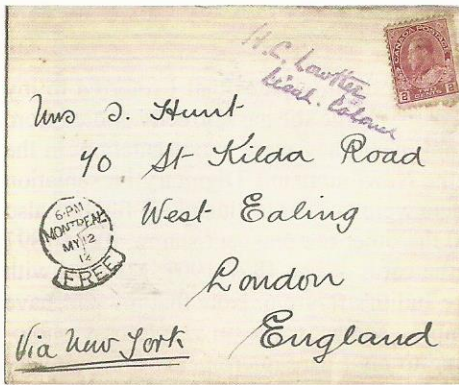 H.C. Lowther
Lieut. Colonel
CANADA POSTAGE
2 CENTS 2
Mrs J. Hunt
40 St Kilda Road
West Ealing
London
England
6-PM
MONTREAL
MY 12
12
FREE
Via New York